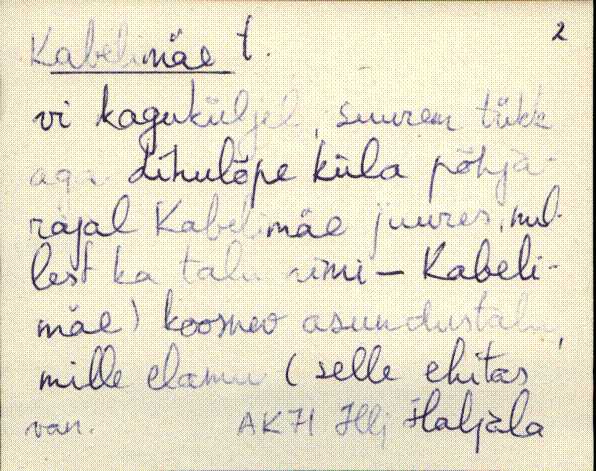 Kabelimäe t. 2
vi kaguküljel, suurem tükk
aga Lihulõpe küla põhja-
rajal Kabelimäe juures, mil-
lest ka talu nimi – Kabeli-
mäe) koosnev asundustalu,
mille elamu (selle ehitas
van. AK71 Hlj Haljala